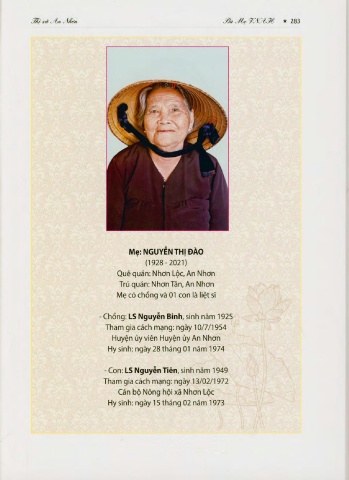 Thị xã An Nhơn
Bà Mẹ VNAH ★ 283
Mẹ: NGUYỄN THỊ ĐÀO
(1928 - 2021)
Quê quán: Nhơn Lộc, An Nhơn
Trú quán: Nhơn Tân, An Nhơn
Mẹ có chồng và 01 con là liệt sĩ
- Chồng: LS Nguyễn Bính, sinh năm 1925
Tham gia cách mạng: ngày 10/7/1954
Huyện ủy viên Huyện ủy An Nhơn
Hy sinh: ngày 28 tháng 01 năm 1974
- Con: LS Nguyễn Tiên, sinh năm 1949
Tham gia cách mạng: ngày 13/02/1972
Cán bộ Nông hội xã Nhơn Lộc
Hy sinh: ngày 15 tháng 02 năm 1973